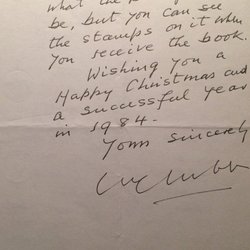 be, but you can see
the stamps on it when
you receive the book.
Wishing you a
Happy Christmas and
a successful year
in 1984.
Yours sincerely